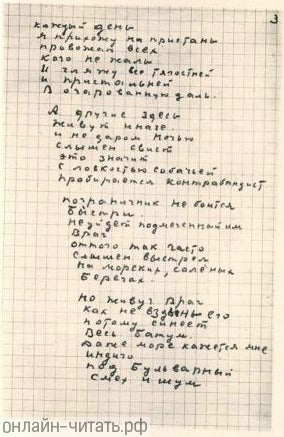 3
каждый день
я прихожу на пристань
провожая всех
кого не жаль
И гляжу все тягостней
и пристальней
В очарованную даль.
А другие здесь
живут иначе.
и не даром ночью
слышен свист
это значит
с ловкостью собачьей
пробирается контрабандист
пограничник не боится
быстри.
не уйдет подмеченный им
враг
оттого так часто
слышен выстрел
на морских, соленых
берегах.
но живуч враг
как не вздынь его
потому синеет
весь батум.
даже море кажется мне
индиго
под бульварный
смех и шум
онлайн-читать.рф